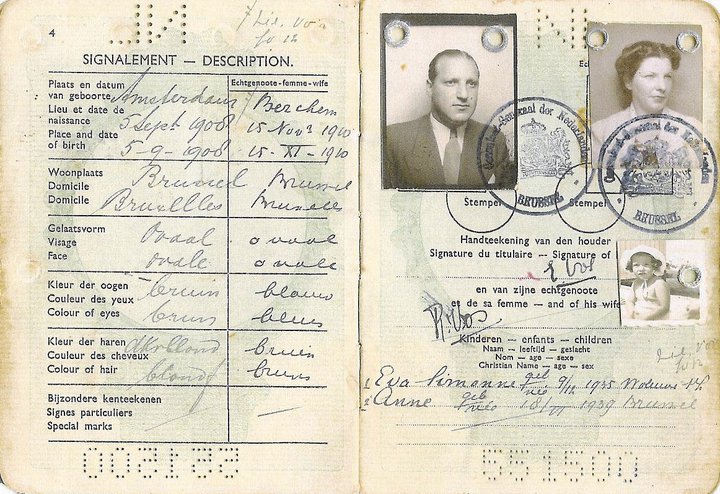 4
SIGNALEMENT — DESCRIPTION.
Echtgenoote-femme-wife
Plaats en datum
van geboorte
Lieu et date de
naissance
Place and date
of birth
Amsterdam
5 Sept 1908
5-9-1908
Berchem
15 Nov 1910
15-XI-1910
Woonplaats
Domicile
Domicile
Brussel
Bruxelles
Brussel
Bruxelles
Gelaatsvorm
Visage
Face
Ovaal
ovale
ovaal
ovale
Kleur der oogen
Couleur des yeux
Colour of eyes
bruin
brun
blauw
bleus
Kleur der haren
Couleur des cheveux
Colour of hair
blond
bruin
bruns
Bijzondere kenteekenen
Signes particuliers
Special marks
551500
NL
Consulaat-Generaal der Nederlanden
BRUSSEL
Consulaat-Generaal der Nederlanden
BRUSSEL
Stempel
Stempel
Handteekening van den houder
Signature du titulaire — Signature of
E Vos
en van zijne echtgenoote
et de sa femme — and of his wife
R. Vos
Kinderen — enfants — children
Naam — leeftijd — geslacht
Nom — age — sexe
Christian Name — age — sex
1 Eva Simanne geb/née 9/12 1935
2 Anne geb/née 1939 Brussel
551500